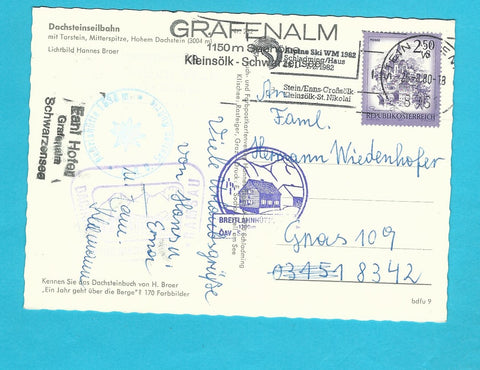 Dachsteinseilbahn
mit Torstein, Mitterspitze, Hohem Dachstein (3004 m)
Lichtbild Hannes Broer
GRAFENALM
1150 m Seehöhe
Kleinsölk - Schwarzensee
Alpine Ski WM 1982
Schladming/Haus
1982
Stein/Enns-Großsölk-
Kleinsölk-St. Nikolai
2.50
REPUBLIK ÖSTERREICH
An
Faml.
Hermann Wiedenhofer
Gnas 109
03451 8342
Viele Urlaubsgrüße
von Hansi,
Erna
u.
Hermann
Karl Hofer
Grafenalm
Schwarzensee
BREITLAHNHÜTTE
ÖAV
Kennen Sie das Dachsteinbuch von H. Broer
„Ein Jahr geht über die Berge“? 170 Farbbilder
bdfu 9